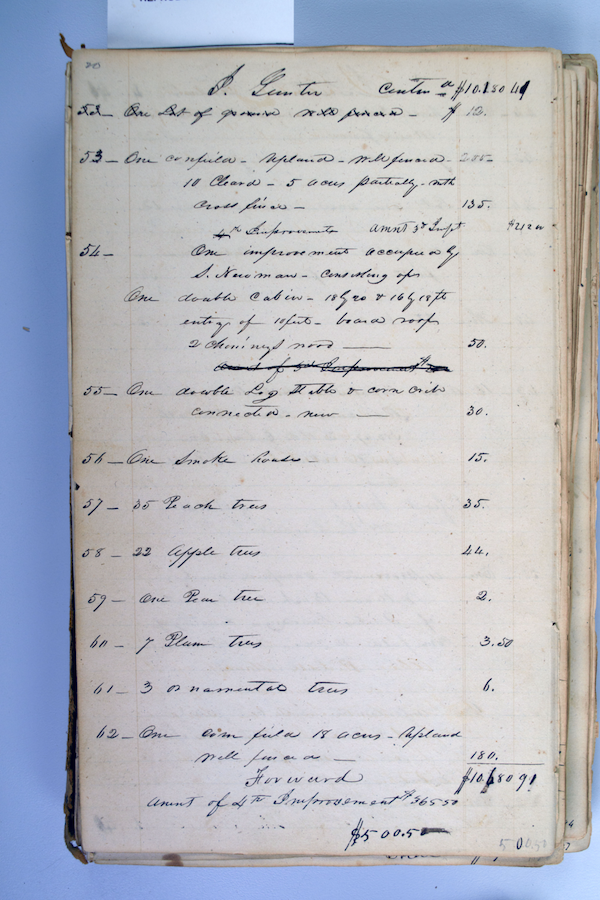 20
J. Gunter Contin d $10.180 41
52 — One Lot of ground well fenced — $ 12.
53 — One cornfield — Upland — well fenced 285—
10 Cleard — 5 acres partially — with
cross fence — 135.
4th Improvements amnt 3d Impt $212 00
54 — One improvement occupied by
S. Newman — consisting of
One double Cabin — 18 by 20 & 16 by 18 ft
entry of 10 feet — board roof
2 Chimneys wood — 50.
Amnt of 3d Improvement
55 — One double Log Stable & corn crib
connected — new — 30.
56 — One Smoke house 15.
57 — 35 Peach trees 35.
58 — 22 Apple trees 44.
59 — One Pear tree 2.
60 — 7 Plum trees 3.50
61 — 3 ornamental trees 6.
62 — One corn field 18 acres — Upland
well fenced — 180.
Forward $10680 91
amnt of 4th Improvement $365 50
$500.50
500.50